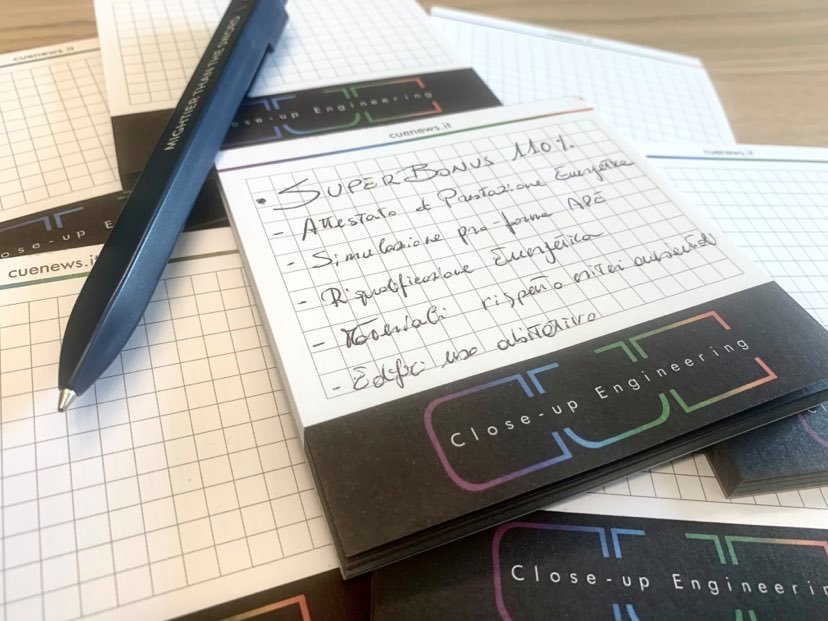 cuenews.it
MIGHTIER THAN THE SWORD
lose-up Engineering
cuenews.it
cuenews.it
• SUPERBONUS 110%
- Attestato di Prestazione Energetica
- Simulazione pro-forma APE
- Riqualificazione Energetica
- rispetto criteri ambientali
- Edifici uso abitativo
Close-up Engineering
lose-up
cuenews.it
Close-up Engineering